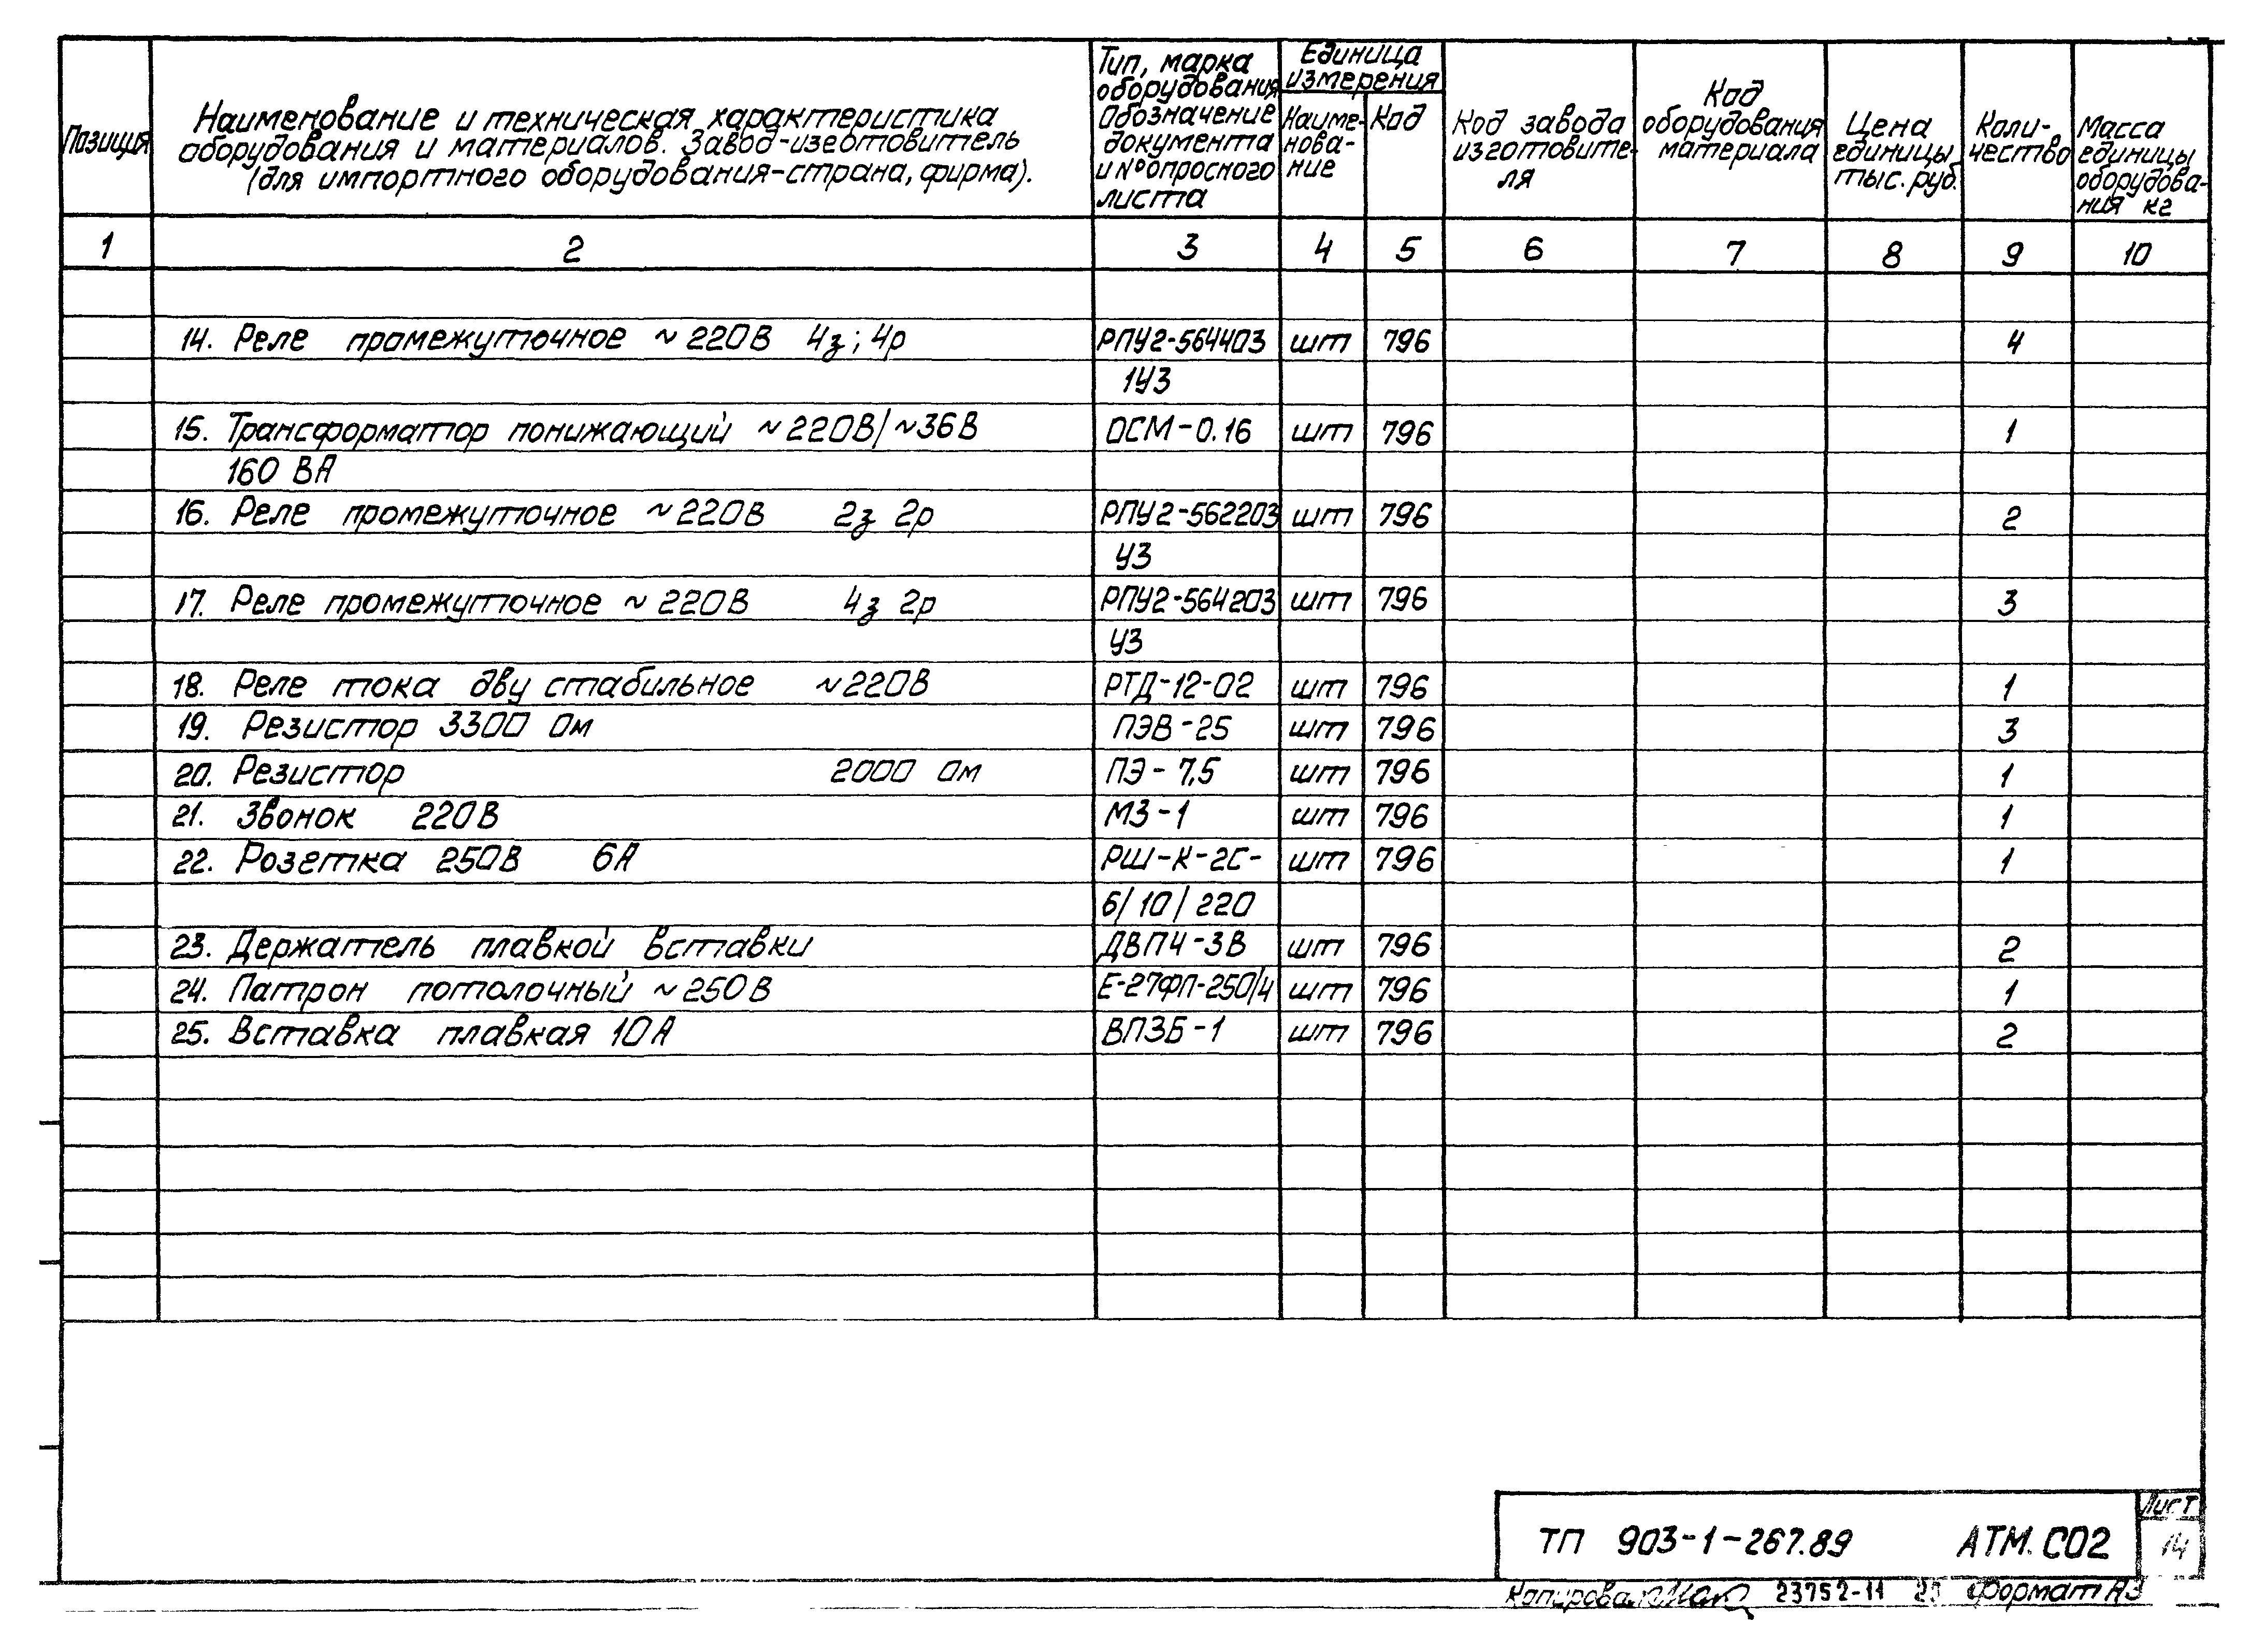 Позиция
Наименование и техническая характеристика
оборудования и материалов. Завод-изготовитель
(для импортного оборудования-страна, фирма).
Тип, марка
оборудования
Обозначение
документа
и № опросного
листа
Единица
измерения
Наиме-
нова-
ние
Код
Код завода
изготовите-
ля
Код
оборудования
материала
Цена
единицы
тыс. руб.
Коли-
чество
Масса
единицы
оборудова-
ния кг
1 2 3 4 5 6 7 8 9 10
14. Реле промежуточное ~220В 4з; 4р РПУ2-564403 шт 796 4
1У3
15. Трансформатор понижающий ~220В/~36В ОСМ-0.16 шт 796 1
160 ВА
16. Реле промежуточное ~220В 2з 2р РПУ2-562203 шт 796 2
У3
17. Реле промежуточное ~220В 4з 2р РПУ2-564203 шт 796 3
У3
18. Реле тока двустабильное ~220В РТД-12-02 шт 796 1
19. Резистор 3300 Ом ПЭВ-25 шт 796 3
20. Резистор 2000 Ом ПЭ-7,5 шт 796 1
21. Звонок 220В МЗ-1 шт 796 1
22. Розетка 250В 6А РШ-К-2С- шт 796 1
6/10/220
23. Держатель плавкой вставки ДВП4-3В шт 796 2
24. Патрон потолочный ~250В Е-27ФП-250/4 шт 796 1
25. Вставка плавкая 10А ВП3Б-1 шт 796 2
ТП 903-1-267.89 АТМ.СО2
Лист
14
Копировал 23752-11 Формат А3